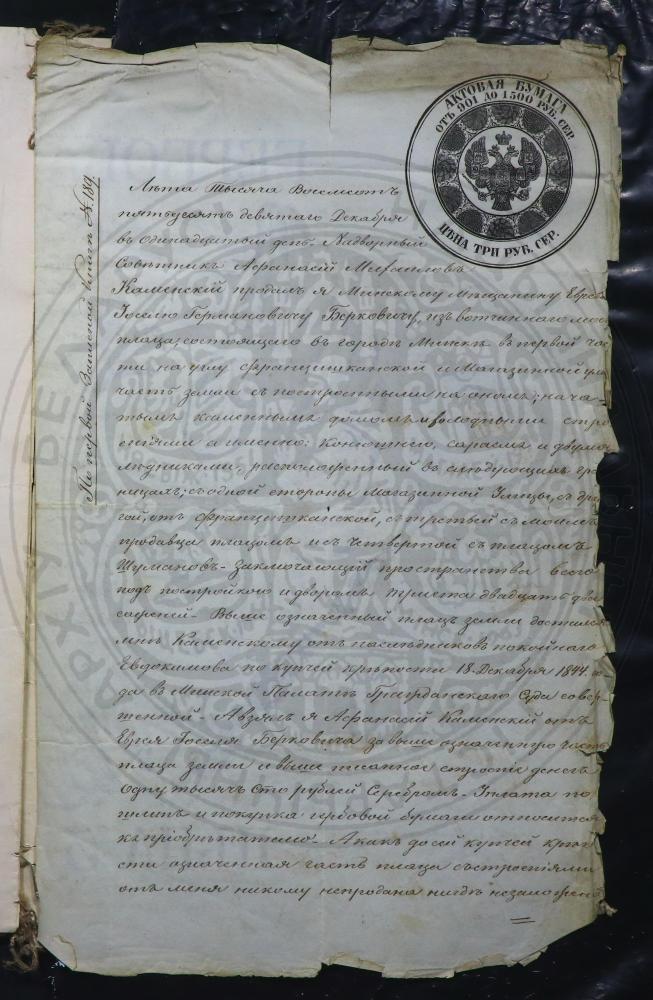 АКТОВАЯ БУМАГА
ОТЪ 901 ДО 1500 РУБ. СЕР.
ЦѢНА ТРИ РУБ. СЕР.
По первой Записной книгѣ № 189.
Лѣта Тысяча Восемсотъ
пятьдесятъ девятаго Декабря
въ одинадцатый день Надворный
Совѣтникъ Афанасій Михайловъ
Каменскій продалъ я Минскому мѣщанину Еврею
Іоселю Германовичу Берковичу, изъ вотчиннаго моего
плаца состоящаго въ городѣ Минскѣ въ первой час
ти на углу Францишканской и Магазинной улицъ
часть земли съ построенными на ономъ; нача
тымъ каменнымъ домомъ и холодными стро
еніями а именно: конюшнею, сараемъ и двумя
ледниками, расположенный въ слѣдующихъ гра
ницахъ; съ одной стороны Магазинной Улицы, съ дру
гой, отъ Францишканской, съ третьей съ моимъ
продавца плацомъ и съ четвертой съ плацомъ
Шулмановъ - заключающій пространства всего
подъ постройкою и дворомъ триста двадцать двѣ
саженей - Выше означенный плацъ земли достался
мнѣ Каменскому отъ наслѣдниковъ покойнаго
Евдокимова по купчей крѣпости 18 Декабря 1844 го
да въ Минской Палатѣ Гражданскаго Суда совер
шенной - А взялъ я Афанасій Каменскій отъ
Еврея Іоселя Берковича за выше означенную часть
плаца земли и выше писанное строеніе денегъ
Одну тысячу сто рублей Серебромъ - Уплата по
шлинъ и покупка гербовой бумаги относится
къ пріобрѣтателю - А какъ до сей купчей крѣпо
сти означенная часть плаца съ строеніями
отъ меня никому непродана нигдѣ незаложена